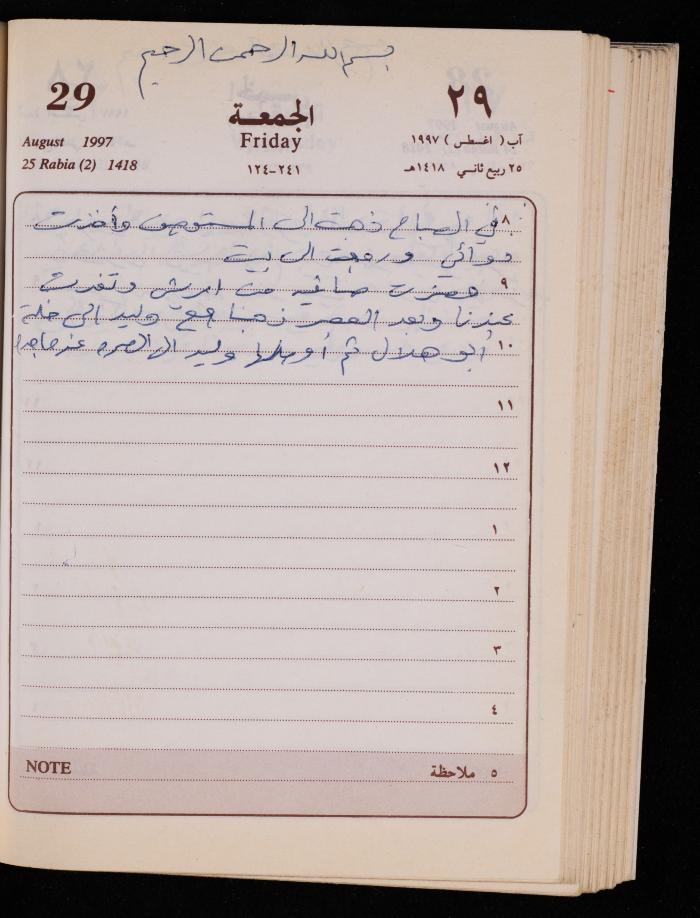 بسم الله الرحمن الرحيم
29 ٢٩
الجمعة
August 1997 Friday آب ( اغسطس ) ١٩٩٧
25 Rabia (2) 1418 ١٢٤-٢٤١ ٢٥ ربيع ثاني ١٤١٨هـ
٨ في الصباح ذهبت الى المستوصف وأخذت
دوائي ورجعت الى بيت
٩ حضرت صافيه من ادرش وتغدت
عندنا وبعد العصر ذهبنا مع وليد الى خلة
١٠ أبو هلال ثم أوصلنا وليد الى
١١
١٢
١
٢
٣
٤
NOTE ٥ ملاحظة